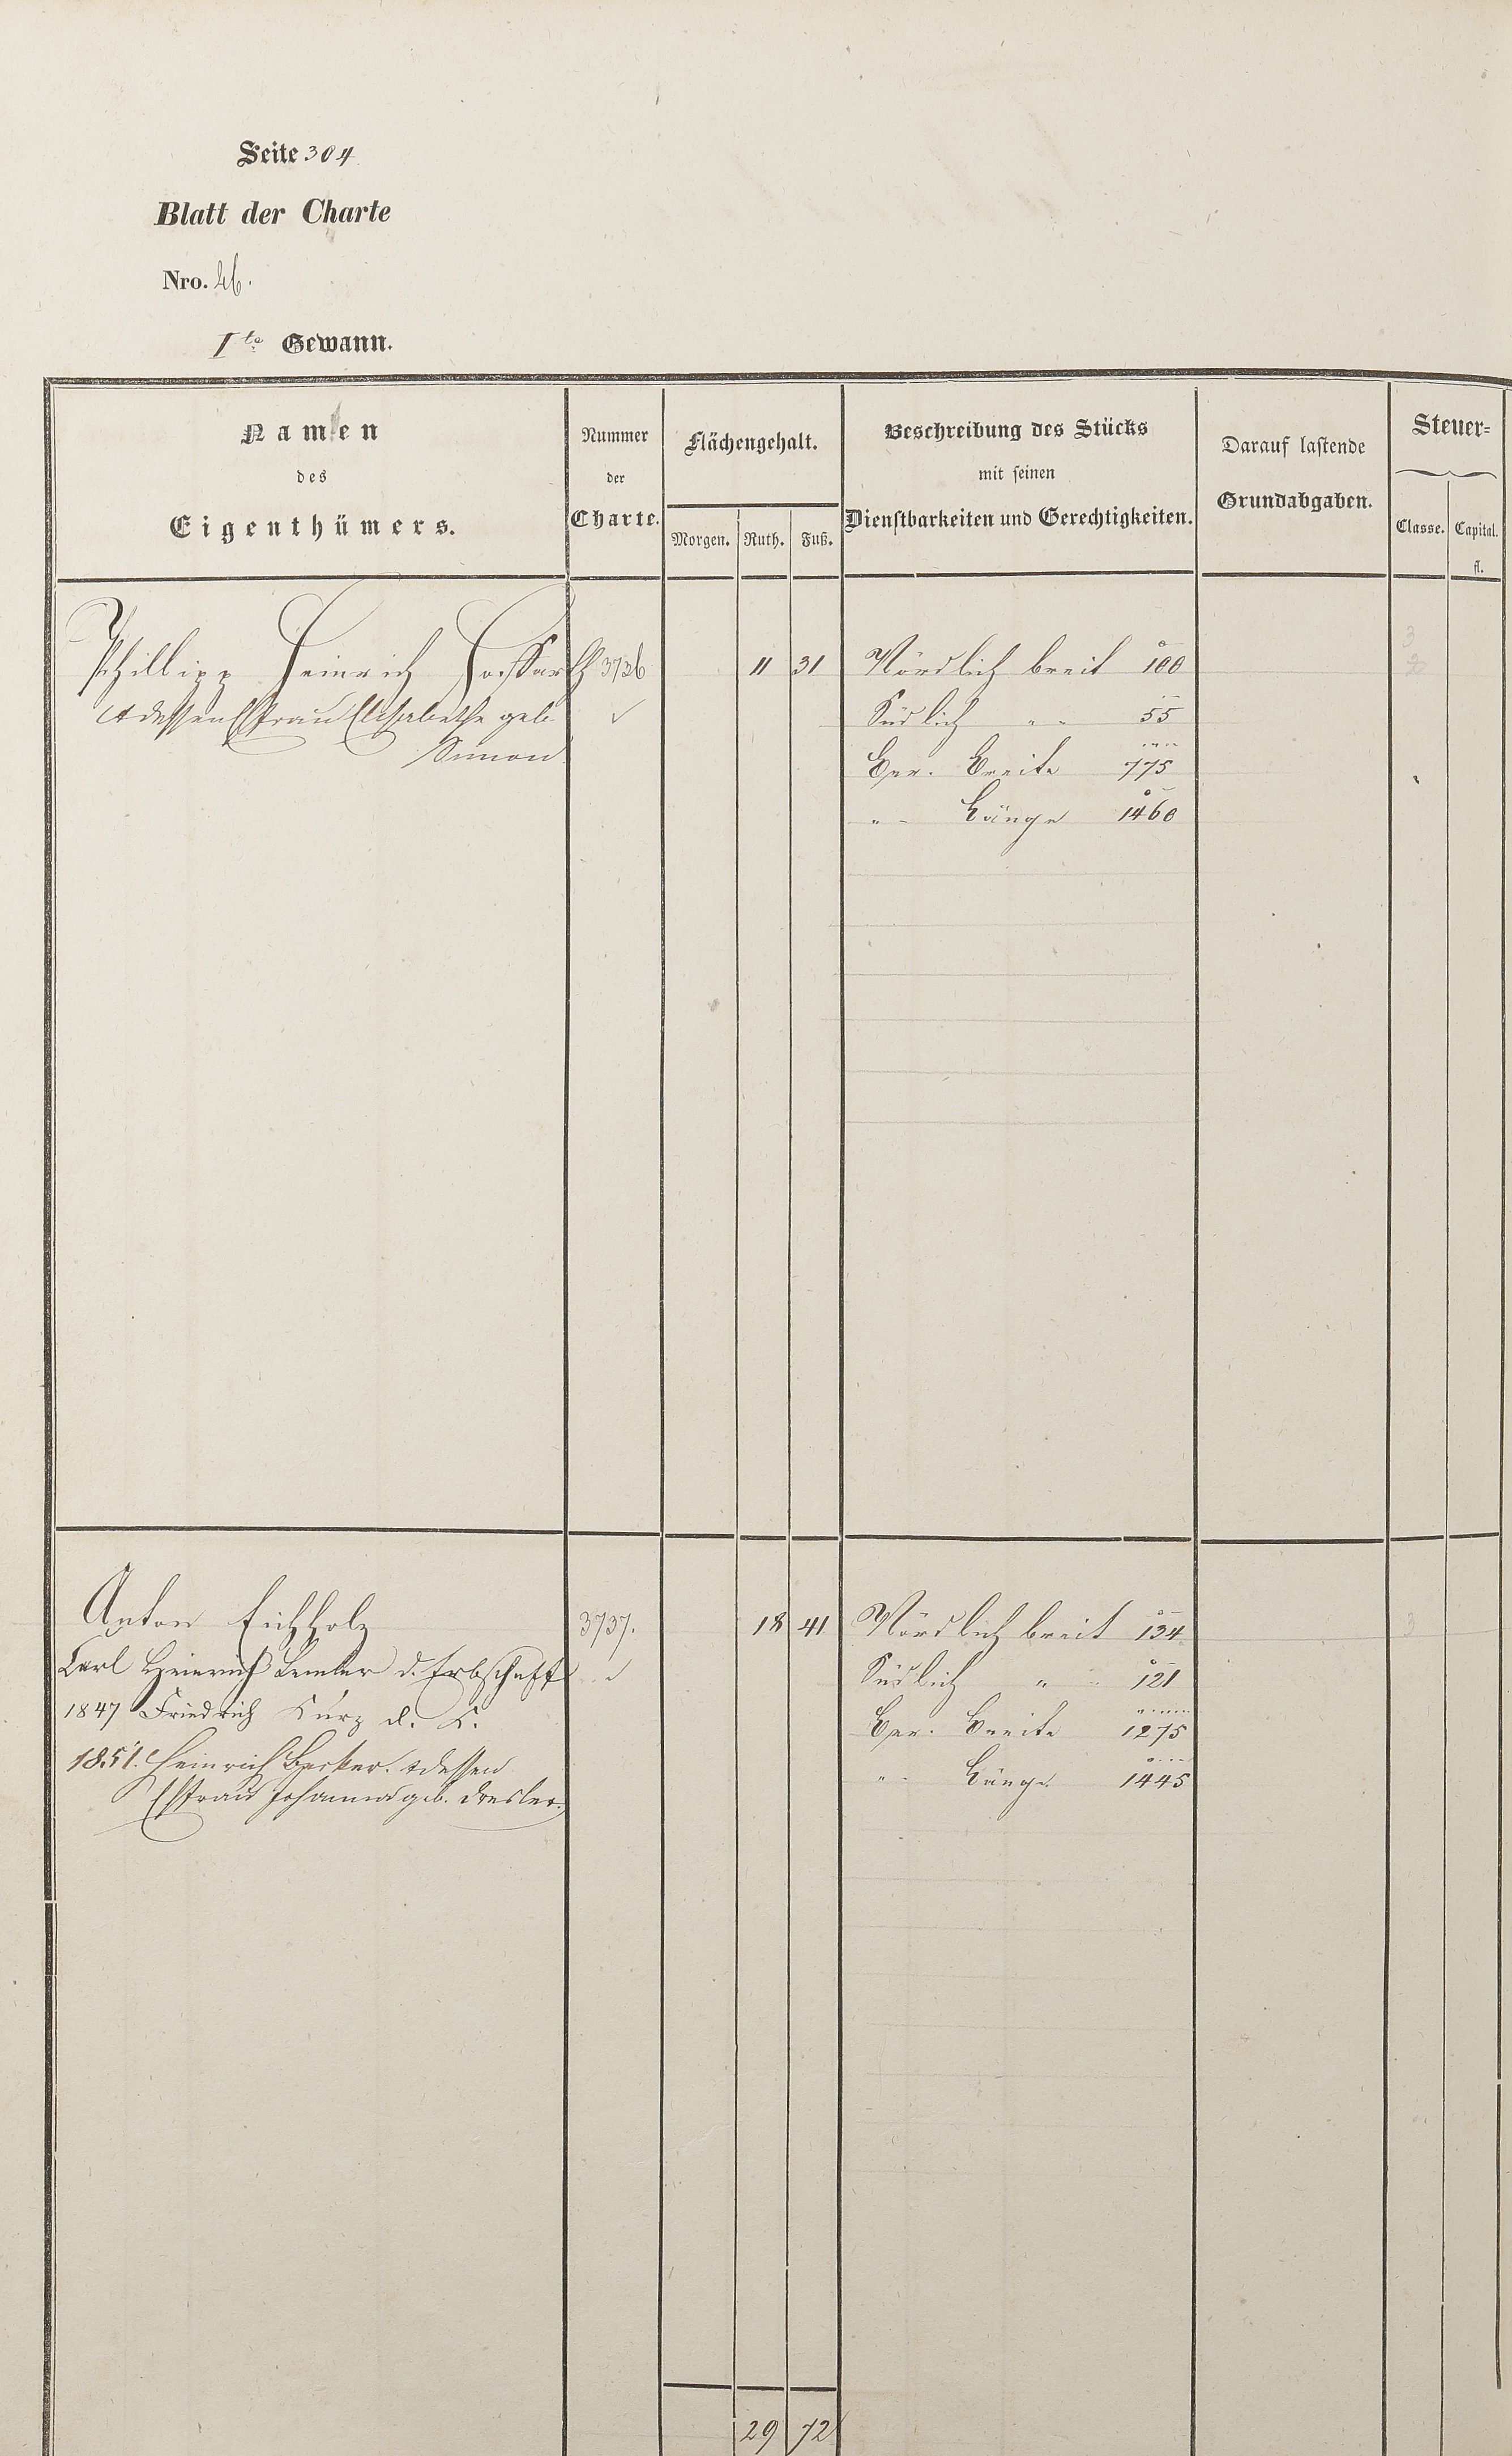 Seite 304
Blatt der Charte
Nro. 26.
Ite Gewann.
Namen
des
Eigenthümers.
Nummer
der
Charte.
Flächengehalt.
Morgen. Ruth. Fuß.
Beschreibung des Stücks
mit seinen
Dienstbarkeiten und Gerechtigkeiten.
Darauf lastende
Grundabgaben.
Steuer-
Classe. Capital.
fl.
Phillipp Heinrich 3736 11 31 Nördlich breit 100
dessen Ehfrau Elisabethe geb. Südlich " " 55
Simon
Ger. Breite 775
" - Länge 1460
3
Anton Eichholz 3737. 18 41 Nördlich breit 134 3
Carl Heinrich d. Erbschaft Südlich " " 121
1847 Friedrich Kurz d. K. Ger. Breite 1275
1851. Heinrich Becker. & dessen " - Länge 1445
Ehfrau Johanna geb. Dresler.
29 72